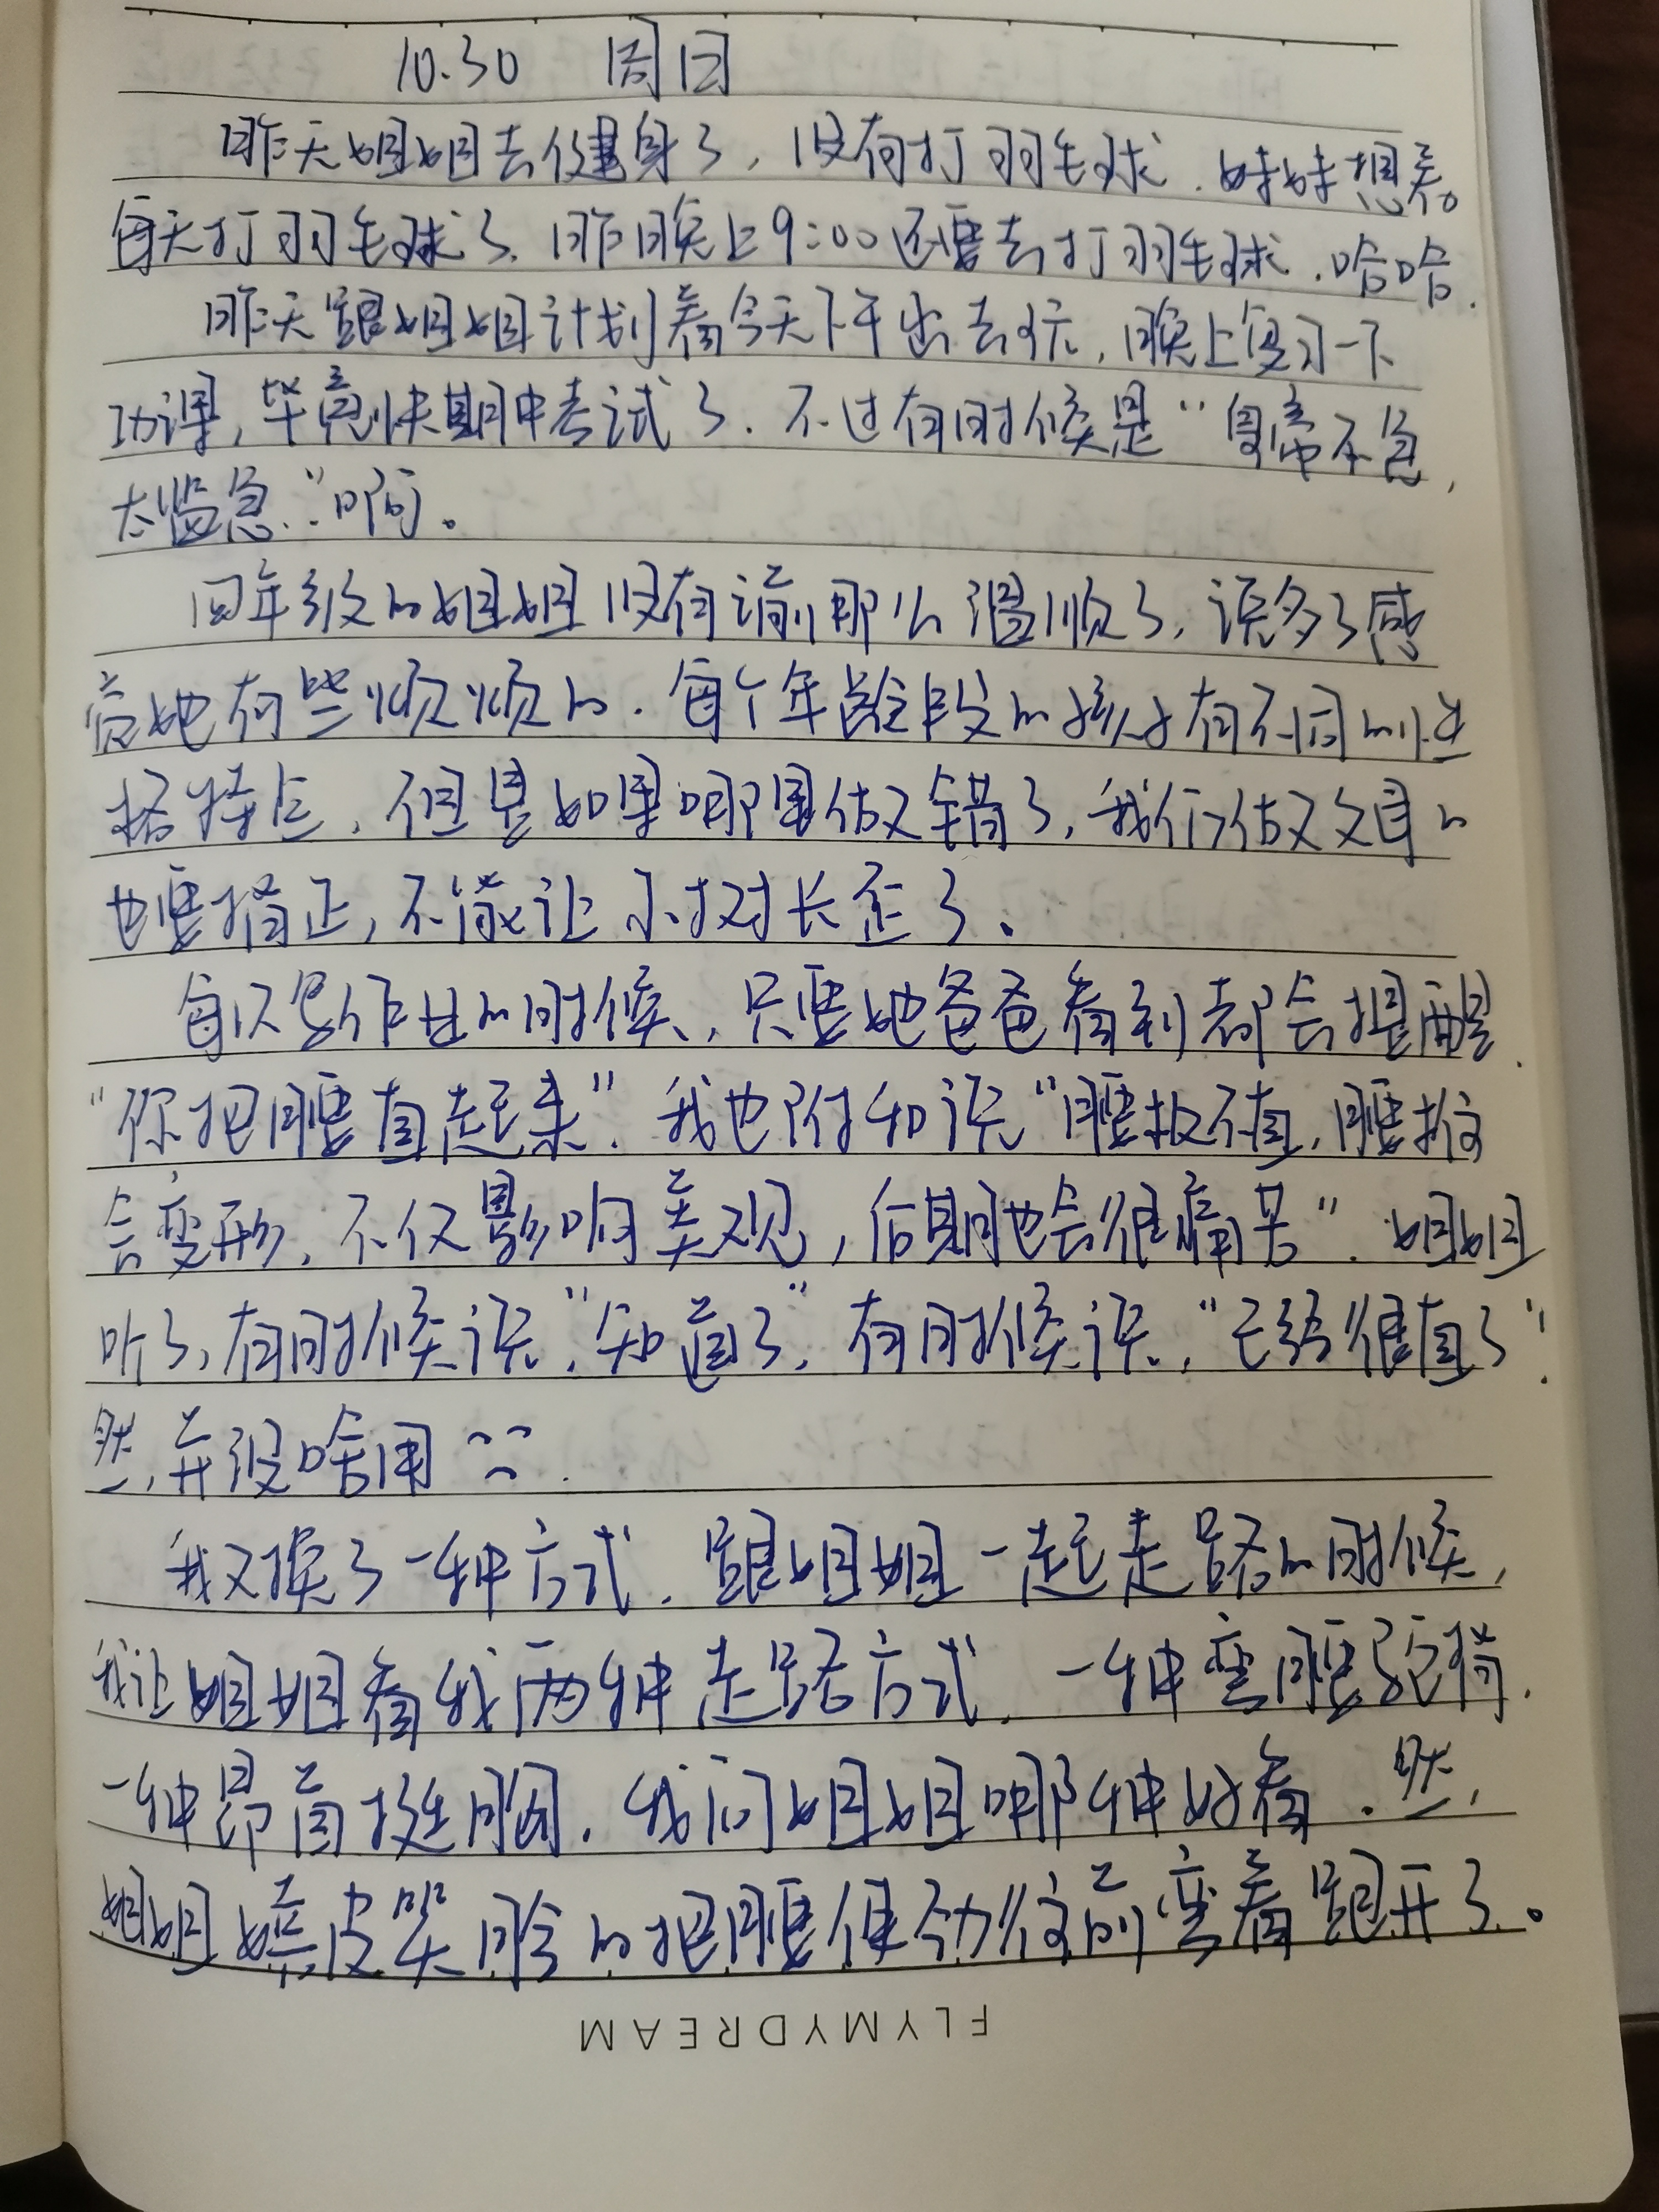 10.30 周日
昨天姐姐去健身了，没有打羽毛球．妹妹想着
每天打羽毛球了．昨晚上9:00还要去打羽毛球．哈哈．
昨天跟姐姐计划着今天下午出去玩，晚上复习一下
功课，毕竟快期中考试了．不过有时候是“皇帝不急，
太监急．”啊。
四年级的姐姐没有前那么温顺了，说多了感
觉她有些烦烦的．每个年龄段的孩子有不同的性
格特点，但是如果哪里做错了，我们做父母的
也要指正，不能让小树长歪了．
每次写作业的时候，只要她爸爸看到都会提醒．
“你把腰直起来”．我也附和说“腰板不直，腰椎
会变形，不仅影响美观，后期也会很痛苦”．姐姐
听了，有时候说，“知道了”，有时候说，“已经很直了”．
然，并没啥用
我又换了一种方式．跟姐姐一起走路的时候，
我让姐姐看我两种走路方式．一种弯腰驼背．
一种昂首挺胸．我问姐姐哪种好看．然，
姐姐嬉皮笑脸的把腰使劲往前弯着跑开了。
FLYMYDREAM